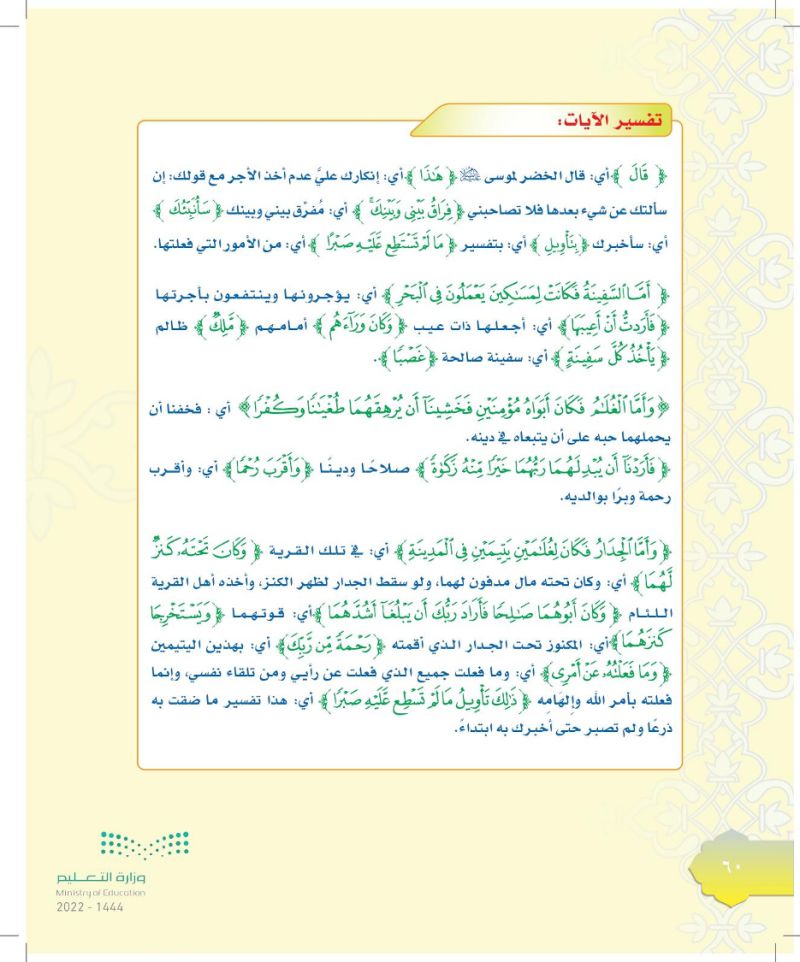 تفسير الآيات:
﴿ قَالَ ﴾ أي: قال الخضر لموسى ﷺ ﴿ هَٰذَا ﴾ أي: إنكارك عليَّ عدم أخذ الأجر مع قولك: إن
سألتك عن شيء بعدها فلا تصاحبني ﴿ فِرَاقُ بَيْنِي وَبَيْنِكَ ۚ ﴾ أي: مُفرّق بيني وبينك ﴿ سَأُنَبِّئُكَ ﴾
أي: سأخبرك ﴿ بِتَأْوِيلِ ﴾ أي: بتفسير ﴿ مَا لَمْ تَسْتَطِع عَّلَيْهِ صَبْرًا ﴾ أي: من الأمور التي فعلتها.
﴿ أَمَّا السَّفِينَةُ فَكَانَتْ لِمَسَٰكِينَ يَعْمَلُونَ فِي الْبَحْرِ ﴾ أي: يؤجرونها وينتفعون بأجرتها
﴿ فَأَرَدتُّ أَنْ أَعِيبَهَا ﴾ أي: أجعلها ذات عيب ﴿ وَكَانَ وَرَآءَهُم ﴾ أمامهم ﴿ مَّلِكٌ ﴾ ظالم
﴿ يَأْخُذُ كُلَّ سَفِينَةٍ ﴾ أي: سفينة صالحة ﴿ غَصْبًا ﴾.
﴿ وَأَمَّا الْغُلَٰمُ فَكَانَ أَبَوَاهُ مُؤْمِنَيْنِ فَخَشِينَآ أَن يُرْهِقَهُمَا طُغْيَٰنًا وَكُفْرًا ﴾ أي : فخفنا أن
يحملهما حبه على أن يتبعاه في دينه.
﴿ فَأَرَدْنَآ أَن يُبْدِلَهُمَا رَبُّهُمَا خَيْرًا مِّنْهُ زَكَوٰةً ﴾ صلاحًا ودينًا ﴿ وَأَقْرَبَ رُحْمًا ﴾ أي: وأقرب
رحمة وبرًا بوالديه.
﴿ وَأَمَّا الْجِدَارُ فَكَانَ لِغُلَٰمَيْنِ يَتِيمَيْنِ فِي الْمَدِينَةِ ﴾ أي: في تلك القرية ﴿ وَكَانَ تَحْتَهُۥ كَنزٌ
لَّهُمَا ﴾ أي: وكان تحته مال مدفون لهما، ولو سقط الجدار لظهر الكنز، وأخذه أهل القرية
اللئام ﴿ وَكَانَ أَبُوهُمَا صَٰلِحًا فَأَرَادَ رَبُّكَ أَن يَبْلُغَآ أَشُدَّهُمَا ﴾ أي: قوتهما ﴿ وَيَسْتَخْرِجَا
كَنزَهُمَا ﴾ أي: المكنوز تحت الجدار الذي أقمته ﴿ رَحْمَةً مِّن رَّبِّكَ ﴾ أي: بهذين اليتيمين
﴿ وَمَا فَعَلْتُهُۥ عَنْ أَمْرِي ﴾ أي: وما فعلت جميع الذي فعلت عن رأيي ومن تلقاء نفسي، وإنما
فعلته بأمر الله وإلهامِه ﴿ ذَٰلِكَ تَأْوِيلُ مَا لَمْ تَسْطِع عَّلَيْهِ صَبْرًا ﴾ أي: هذا تفسير ما ضقت به
ذرعًا ولم تصبر حتى أخبرك به ابتداءً.
٦٠
وزارة التعليم
Ministry of Education
2022 - 1444